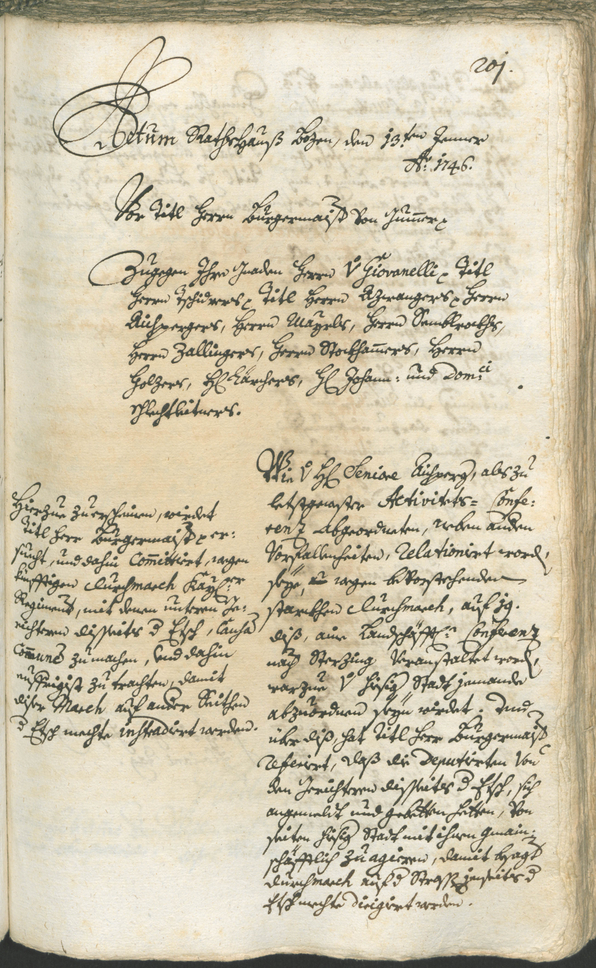 201.
Actum Rathshauß Bozen, den 13.ten Jenner
Aõ. 1746.
Vor Titl Herrn Burgermaister von
Zugegen Ihro Gnaden Herrn V Giovanelli, Titl
Herrn Titl Herrn Herrn
Aichpergers, Herrn Mayrls, Herrn
Herrn Zallingers, Herrn Stockhamers, Herrn
Holzers, H: Kärchers, H: Johann: und Dom:ci
Schlechtleitners.
Hierzue zuerscheinen, wierdet
Titl Herr Burgermaister er:
sucht, und dahin Committiert, wegen
künfftigen durchmarch Kayser
Regiment, mit denen unteren Ge:
richteren disseits d Etsch, Causa
Comune zu machen, und dahin
zu trachten, damit
diser March auf andere Seithen
d Etsch mechte instradiert werden.
Wie V H: Seniore Aichperg, als zu
letstgewester Activitets= Confe:
renz Abgeordneten, neben andern
Vorfallenheiten, relationiert word,
seye, wegen bevorstehenden
starckhen durchmarch, auf 19.
diß, aine Landschäfft: Conferenz
nach Sterzing veranstaltet word,
warzue V hiesig Stadt jemande
abzuordnen seyn wirdet. Und
über diß, hat Titl Herr Burgermaister
referirt, daß die Deputirten von
den Gerichteren disseits d Etsch, sich
angemeldt und gebetten hetten, von
seiten hiesig Stadt mit ihnen gmain:
schäfftlich zu agieren, damit besagt
durchmarch auf d Strass jenseits d
Etsch mechte dirigirt werden.